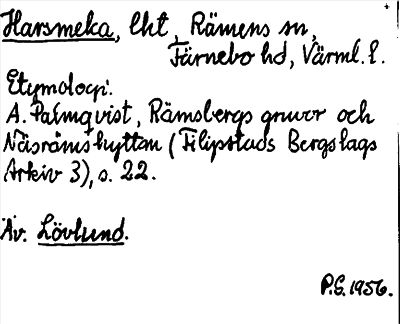 Harsmeka, lht, Rämens sn,
Färnebo hd, Värml. l.
Etymologi:
A. Palmqvist, Rämsbergs gruvor och
Näsrämshyttan (Filipstads Bergslags
Arkiv 3), s. 22.
Äv. Lövlund.
P.G. 1956.